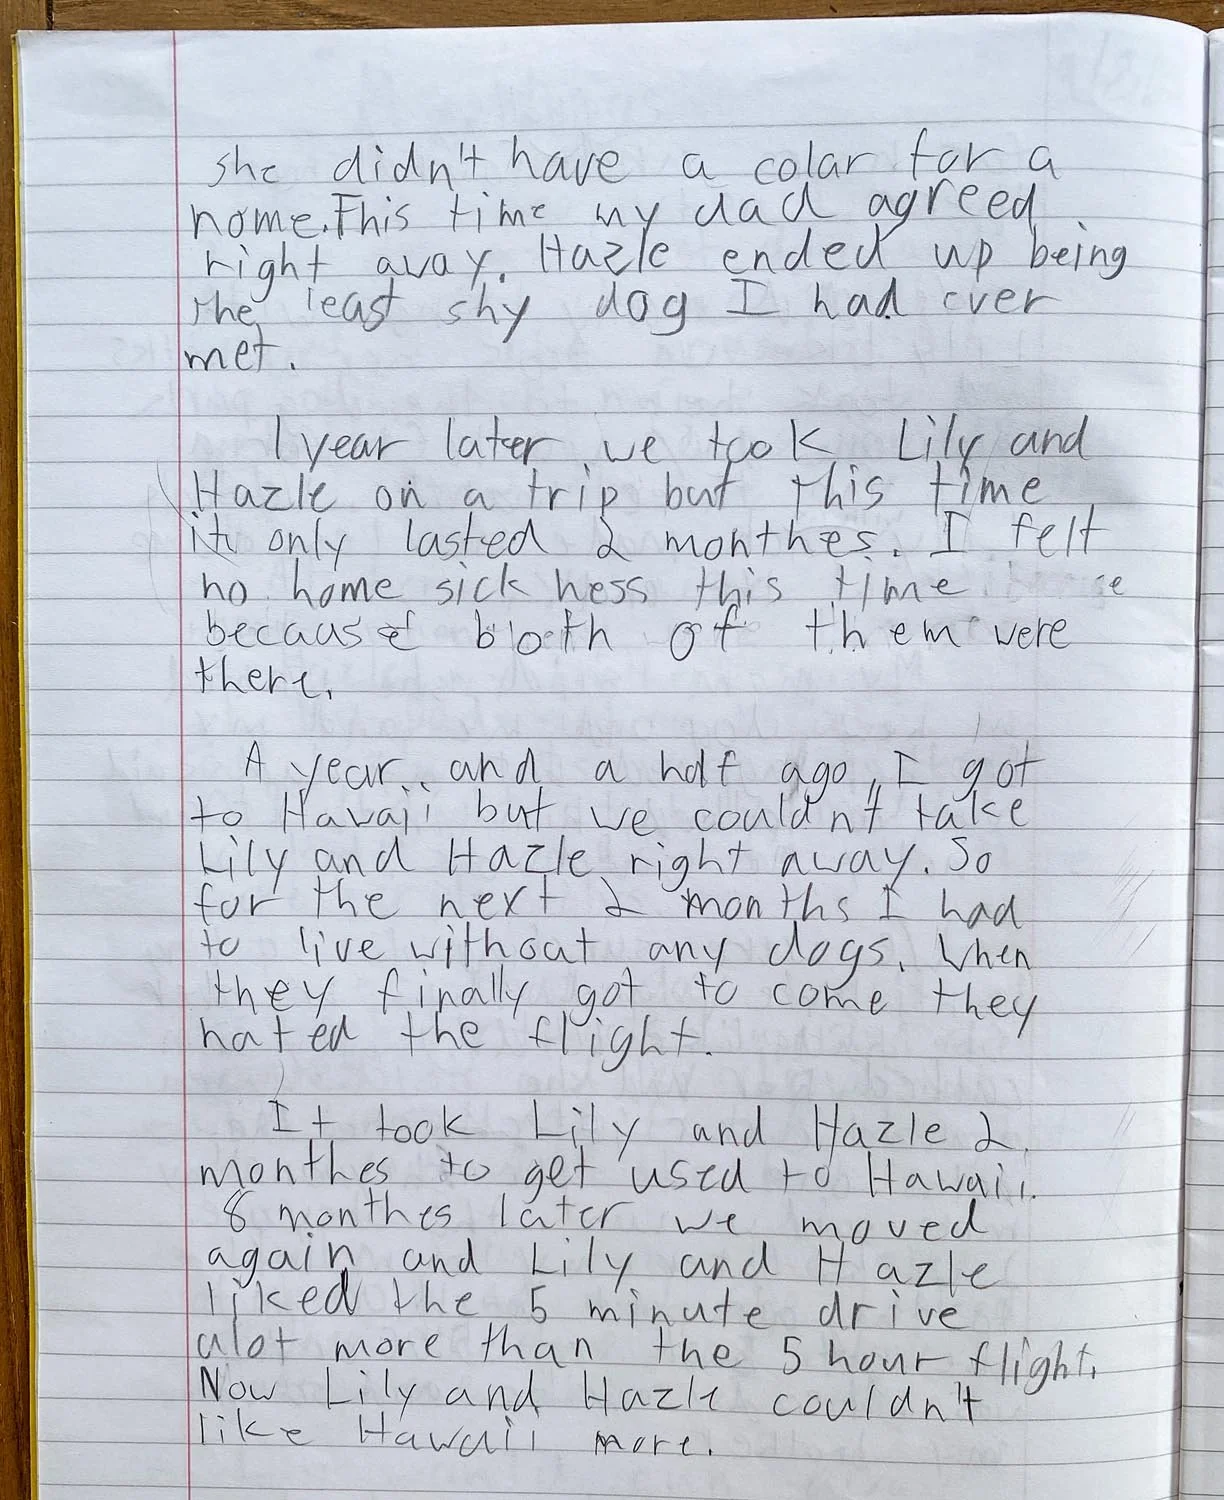 she didn't have a colar for a
home. This time my dad agreed
right avay. Hazle ended up being
the least shy dog I had ever
met.
1 year later we took Lily and
Hazle on a trip but this time
it only lasted 2 monthes. I felt
no home sick ness this time
because both of them were
there.
A year and a half ago, I got
to Havaii but we couldn't take
Lily and Hazle right away. So
for the next 2 months I had
to live without any dogs. When
they finally got to come they
hated the flight.
It took Lily and Hazle 2
monthes to get used to Hawaii.
8 monthes later we moved
again and Lily and Hazle
liked the 5 minute drive
alot more than the 5 hour flight.
Now Lily and Hazle couldn't
like Hawaii more.